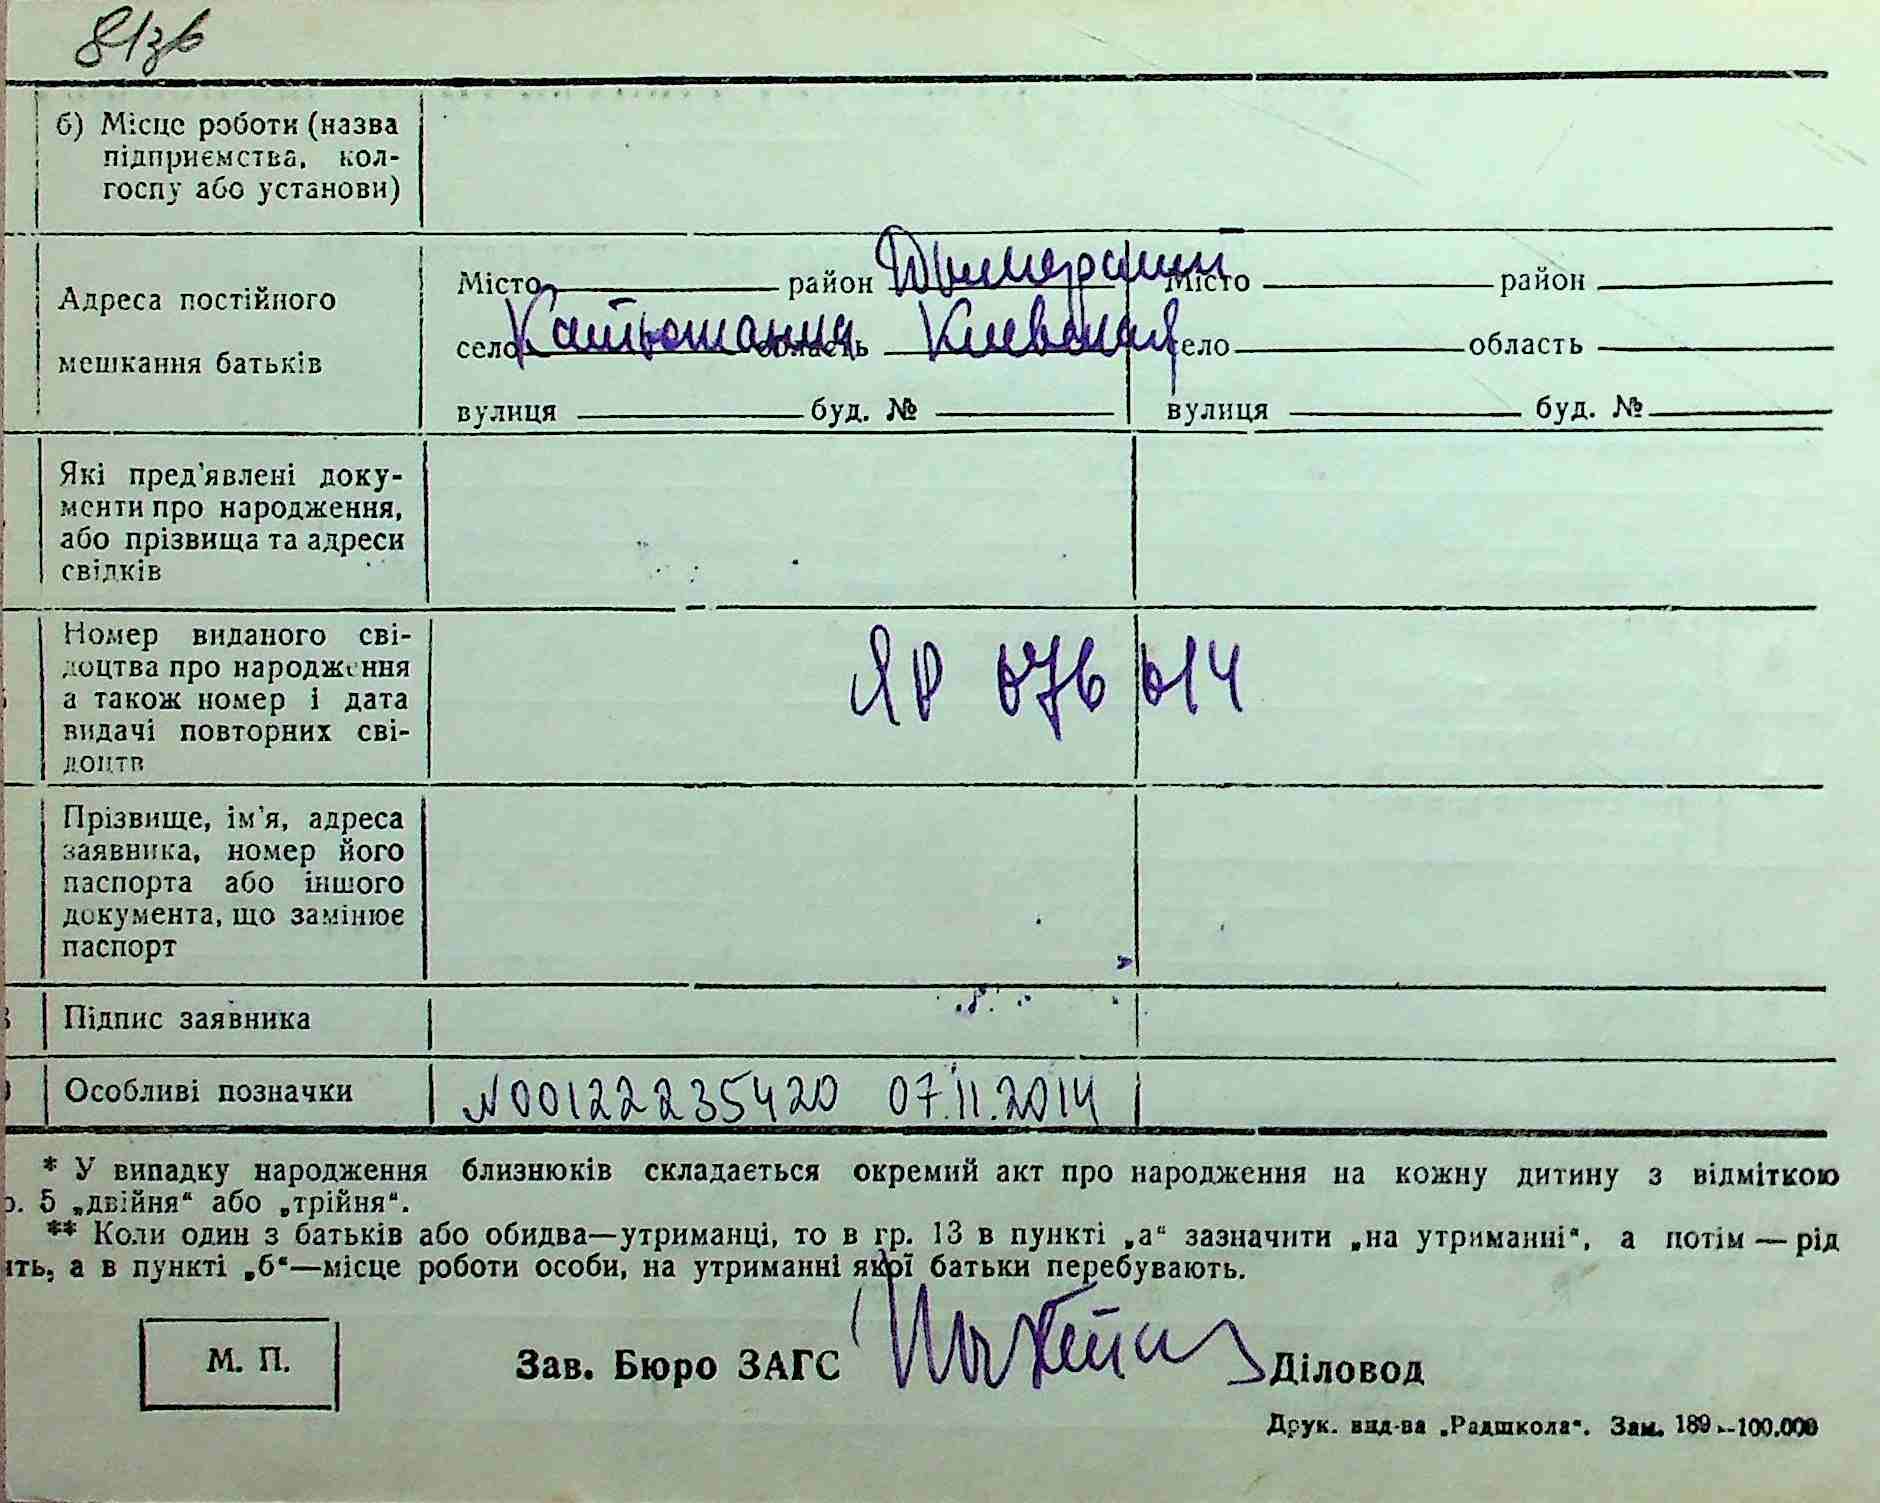 81зв
б) Місце роботи (назва
підприємства, кол-
госпу або установи)
Адреса постійного
мешкання батьків
Місто район Дымерский Місто район
село Катюжанка область Киевская село область
вулиця буд. № вулиця буд. №
Які пред'явлені доку-
менти про народження,
або прізвища та адреси
свідків
Номер виданого сві-
доцтва про народження
а також номер і дата
видачі повторних сві-
доцтв
ЯР 076 014
Прізвище, ім'я, адреса
заявника, номер його
паспорта або іншого
документа, що замінює
паспорт
Підпис заявника
Особливі позначки
N00122235420 07.11.2014
* У випадку народження близнюків складається окремий акт про народження на кожну дитину з відміткою
р. 5 „двійня“ або „трійня“.
** Коли один з батьків або обидва—утриманці, то в гр. 13 в пункті „а“ зазначити „на утриманні“, а потім — рід
ять, а в пункті „б“—місце роботи особи, на утриманні якої батьки перебувають.
М. П.
Зав. Бюро ЗАГС
Діловод
Друк. вид-ва „Радшкола“. Зам. 189.—100.000